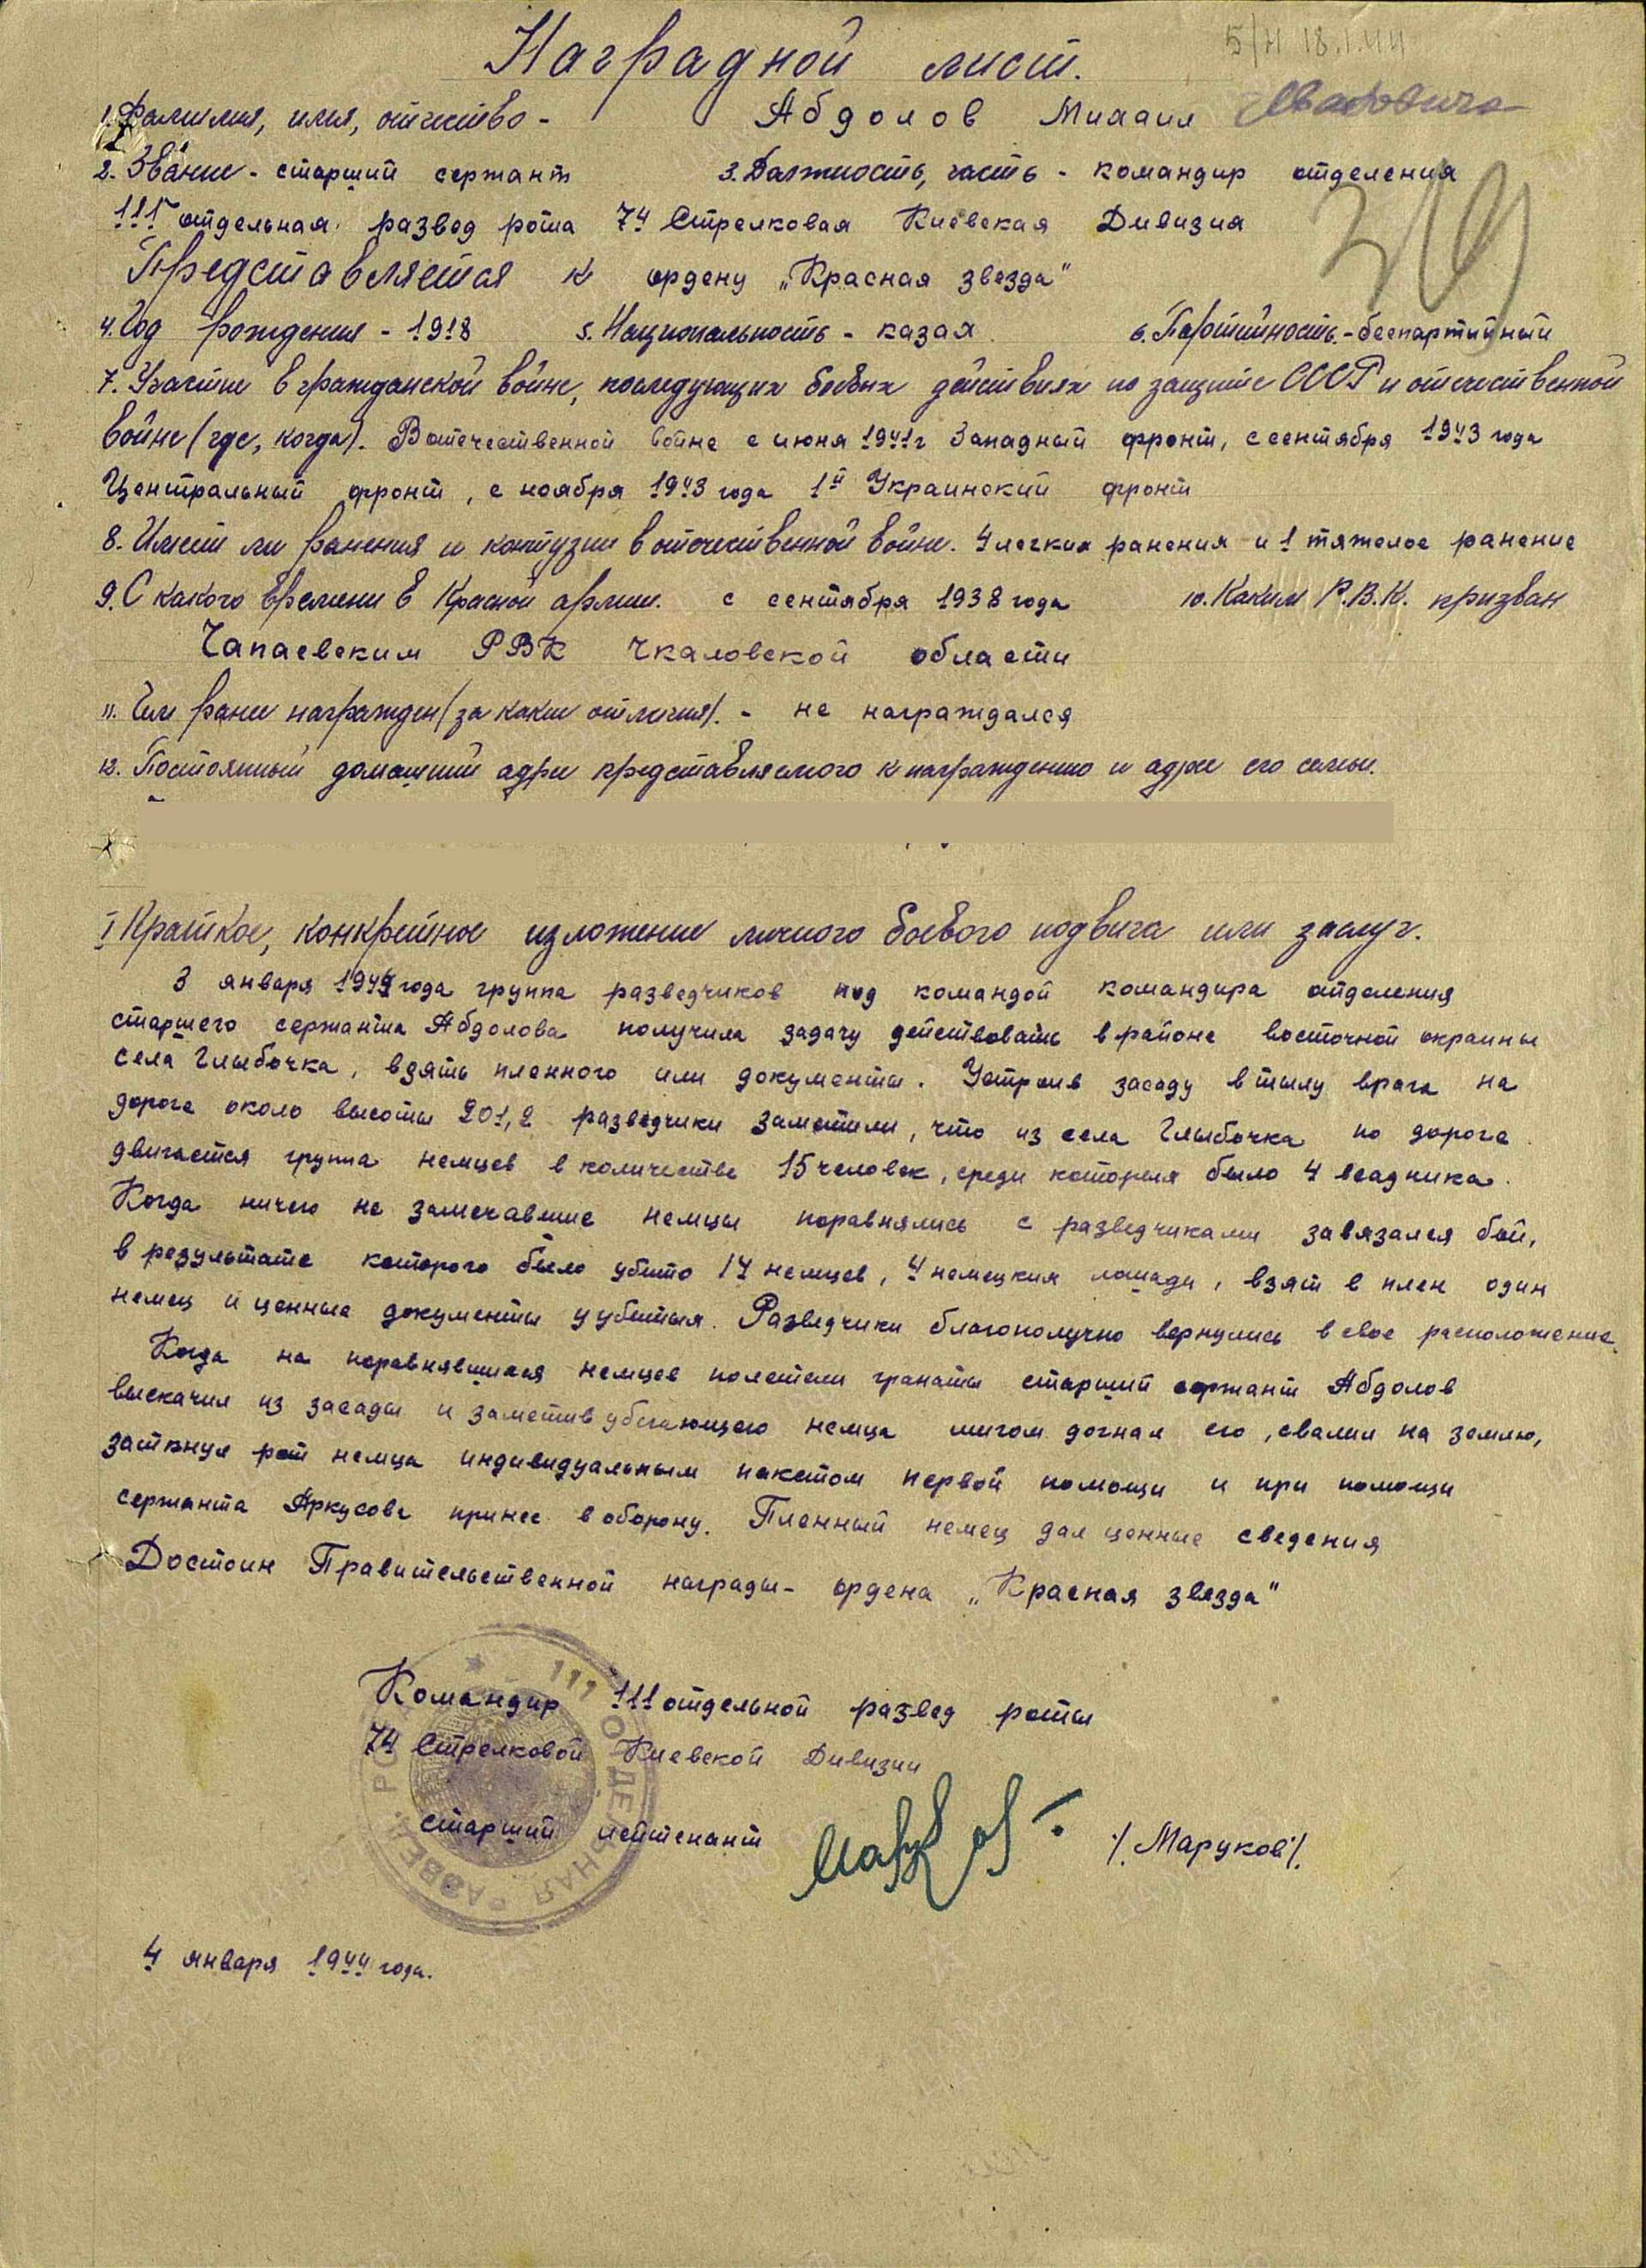 Б/Н 18.1.44
Наградной лист.
1. Фамилия, имя, отчество - Абдолов Михаил
2. Звание - старший сержант 3. Должность, часть - командир отделения
111 отдельная развед рота 74 Стрелковая Киевская Дивизия
Представляется к ордену „Красная звезда"
4. Год рождения - 1918 5. Национальность - казах 6. Партийность. - беспартийный
7. Участие в гражданской войне, последующих боевых действиях по защите СССР и отечественной
войне (где, когда). В отечественной войне с июня 1941 г Западный фронт, с сентября 1943 года
Центральный фронт, с ноября 1943 года 1й Украинский фронт
8. Имеет ли ранения и контузии в отечественной войне. 4 легких ранения и 1 тяжелое ранение
9. С какого времени в Красной армии. с сентября 1938 года 10. Каким Р.В.К. призван
Чапаевским РВК Чкаловской области
11. Чем ранее награжден (за какие отличия). - не награждался
12. Постоянный домашний адрес представляемого к награждению и адрес его семьи.
I Краткое, конкретное изложение личного боевого подвига или заслуг.
3 января 1944 года группа разведчиков под командой командира отделения
старшего сержанта Абдолова получила задачу действовать в районе восточной окраины
села Глыбочка, взять пленного или документы. Устроив засаду в тылу врага на
дороге около высоты 201,2 разведчики заметили, что из села Глыбочка по дороге
двигается группа немцев в количестве 15 человек, среди которых было 4 всадника.
Когда ничего не замечавшие немцы поравнялись с разведчиками завязался бой,
в результате которого было убито 14 немцев, 4 немецких лошади, взят в плен один
немец и ценные документы у убитых. Разведчики благополучно вернулись в свое расположение.
Когда на поравнявшихся немцев полетели гранаты старший сержант Абдолов
выскачил из засады и заметив убегающего немца мигом догнал его, свалил на землю,
заткнул рот немца индивидуальным пакетом первой помощи и при помощи
сержанта Аркусова принес в оборону. Пленный немец дал ценные сведения
Достоин Правительственной награды - ордена „Красная звезда"
Командир 111 отдельной развед роты
74 Стрелковой Киевской Дивизии
старший лейтенант /Маруков/.
111 ОТДЕЛЬНАЯ РАЗВЕД. РОТА
4 января 1944 года.